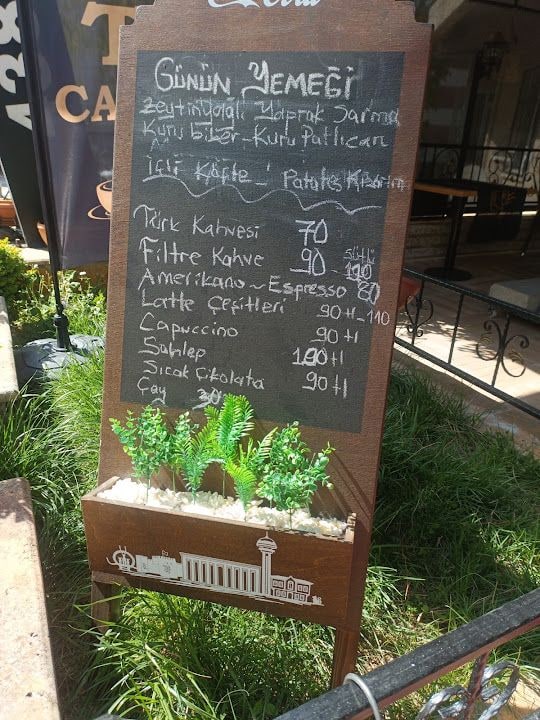 Cola
A38
T
CA
GÜNÜN YEMEĞİ
Zeytinyağlı Yaprak Sarma
Kuru biber - Kuru Patlıcan
İçli Köfte - Patates Kızartm
Türk Kahvesi 70
Filtre Kahve 90 - Sütlü 110
Amerikano - Espresso 80
Latte Çeşitleri 90 tl - 110
Capuccino 90 tl
Sahlep 100 tl
Sıcak Çikolata 90 tl
Çay 30